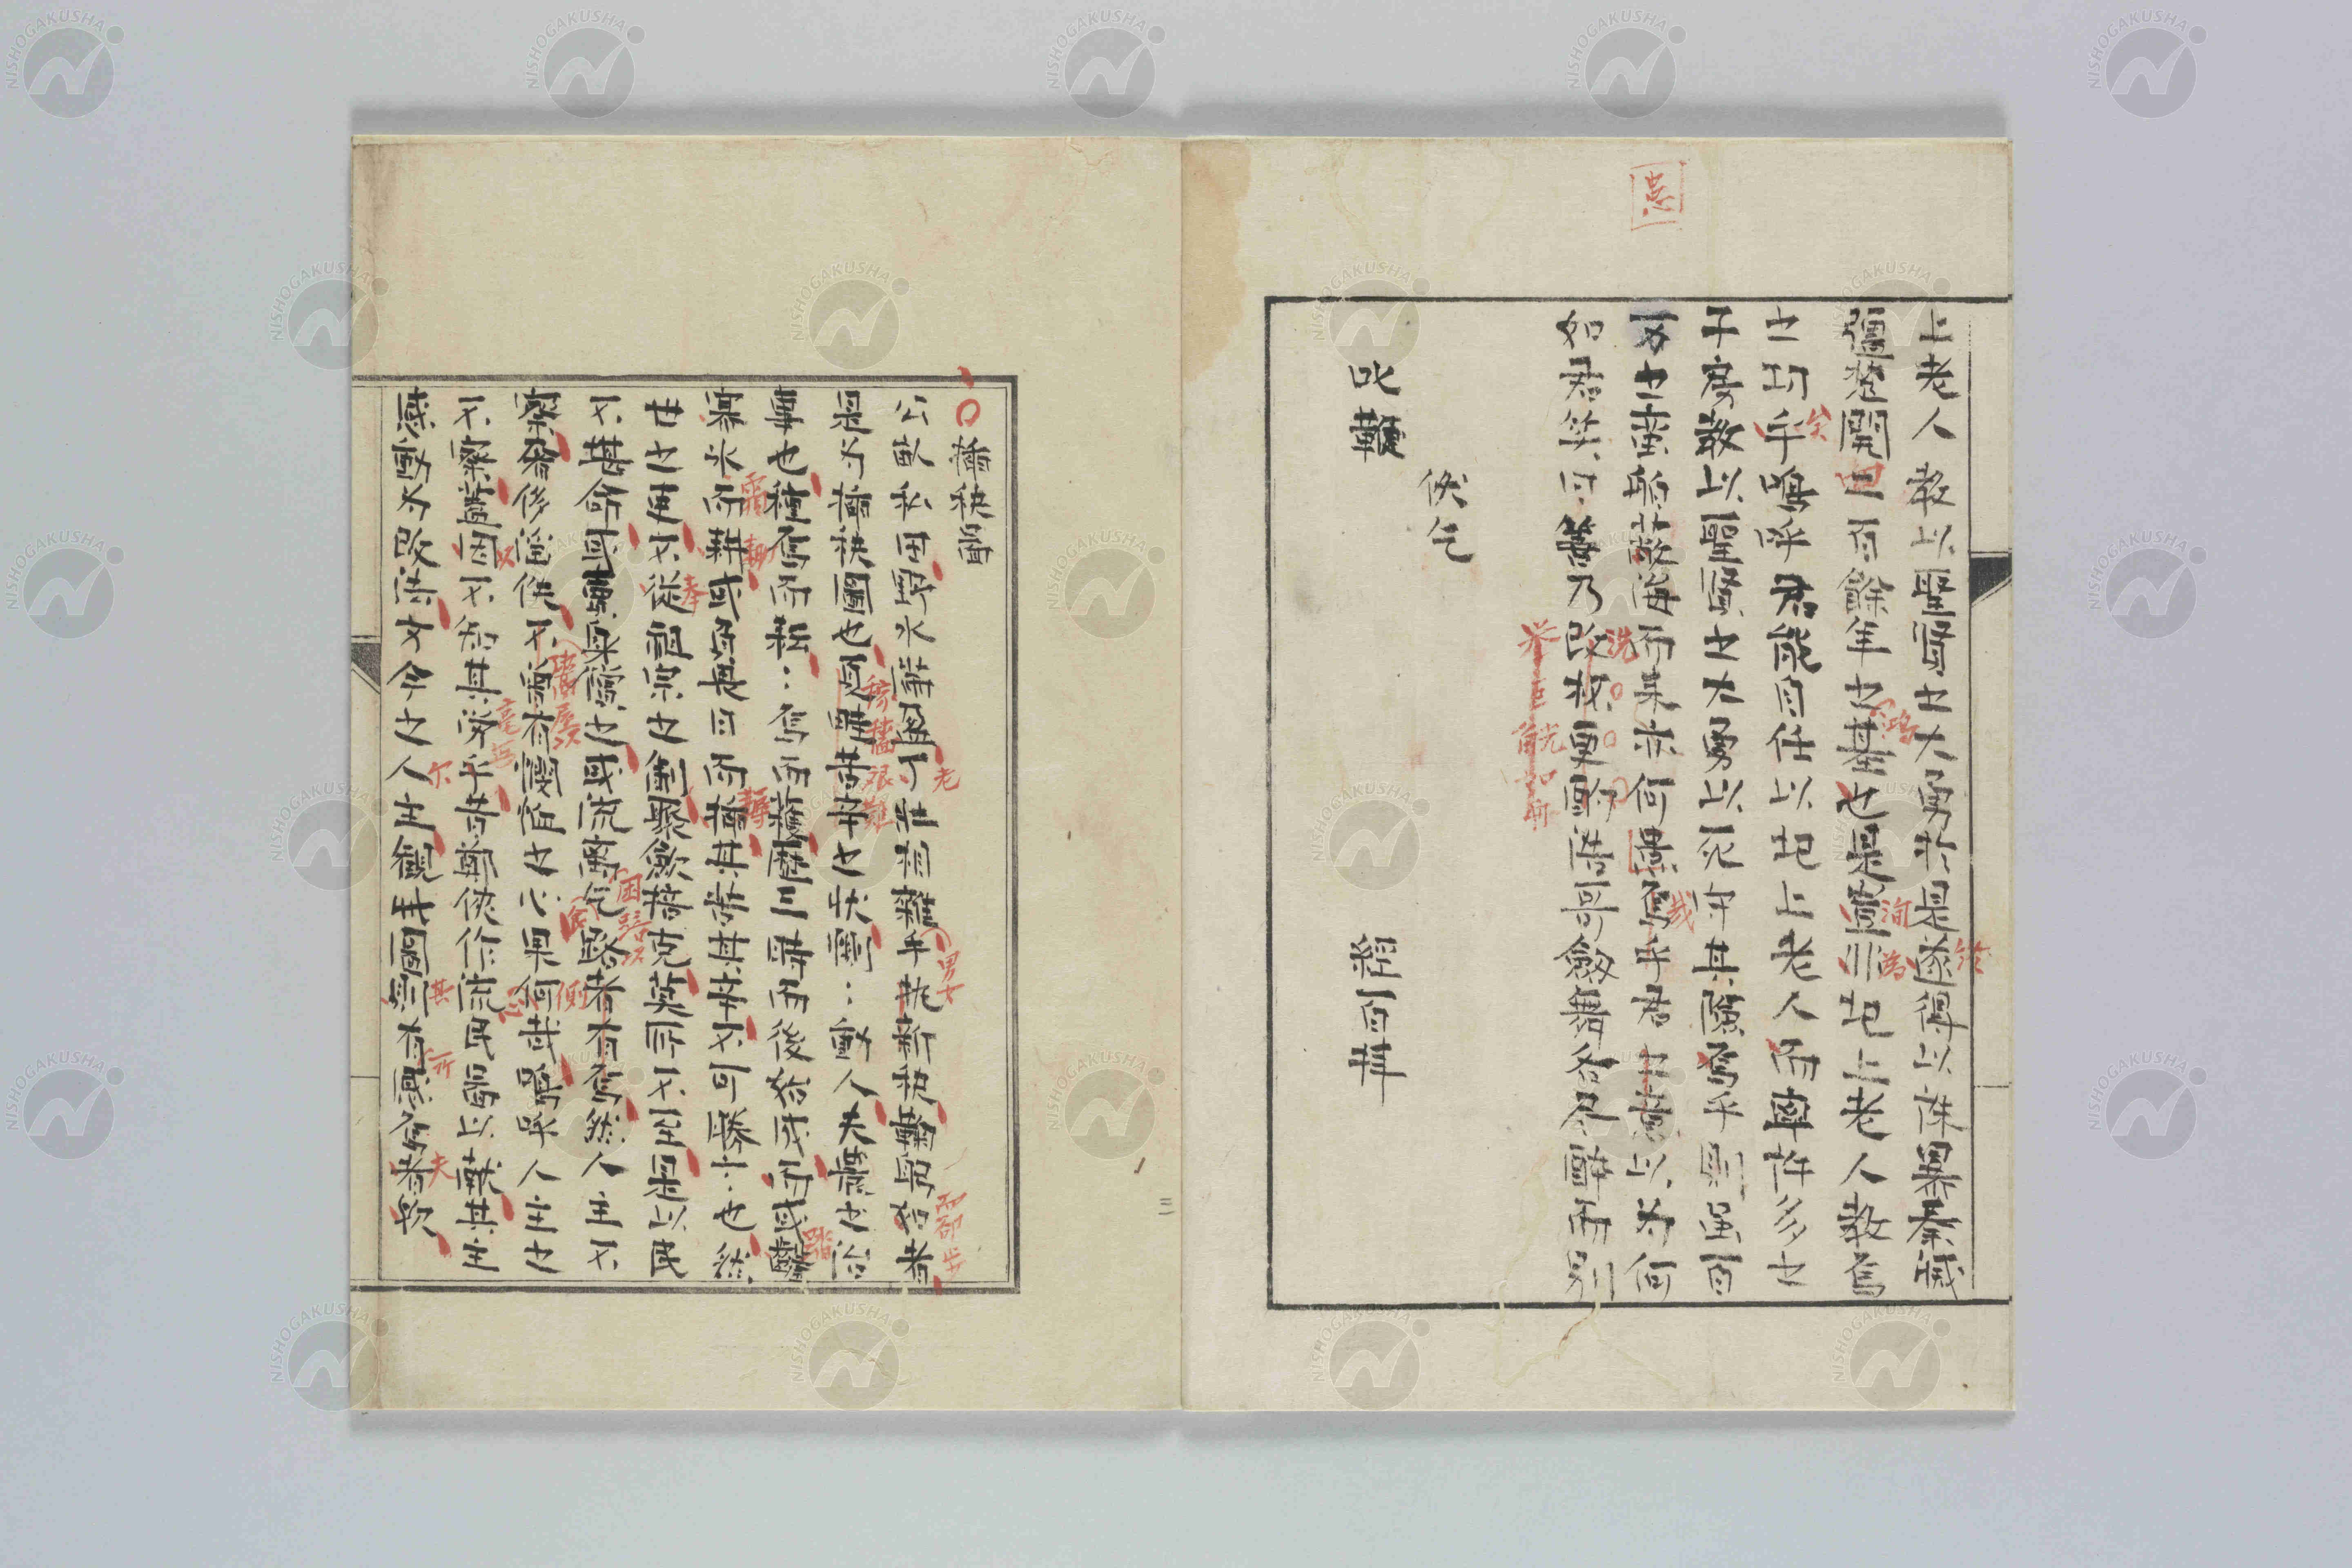 上老人教以聖賢之大勇於是遂得以誅暴秦滅
彊楚開四百餘年之基也是豈非圯上老人教焉
之功乎嗚呼君能自任以圯上老人而率許多之
子房教以聖賢之大勇以死守其隘焉乎則雖百
万之蛮船蔽海而來亦何畏焉乎君之意以為何
如君笑曰善乃改杯更酌浩哥劔舞各尽醉而別
伏乞
叱鞭
經百拜
插秧圖
公畝私田野水滿盈丁壯相雜手執新秧鞠躬者
是為插秧圖也其耕耨之状惻々動人夫農之治
事也種焉而耘々焉而穫歴三時而後始成而或
寒氷而耕或炎日而插其苦其辛不可勝言也然
世之吏不從祖宗之制聚斂掊克莫所不至是以民
不其命或凍與餒也或流離乞路者有焉然人主不
察奢侈淫佚不曽有憫怛之心果何哉嗚呼人主之
不察蓋因不知其勞乎昔鄭俠作流民圖以献其主
感動為改法方今之人主觀我圖則有感焉者歟
矣
鴻
洵
為
終
哉
洗
老
男女
稼穡艱難
霜
耕
耨
奉
困
側
以
其
所
夫
三
NISHOGAKUSHA